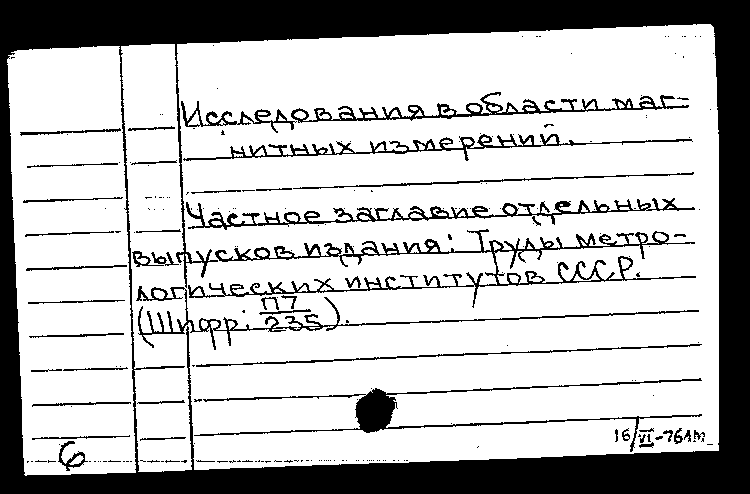 Исследования в области маг-
нитных измерений.
Частное заглавие отдельных
выпусков издания: Труды метро-
логических институтов СССР.
(Шифр: П7/235).
6
16/VI-76